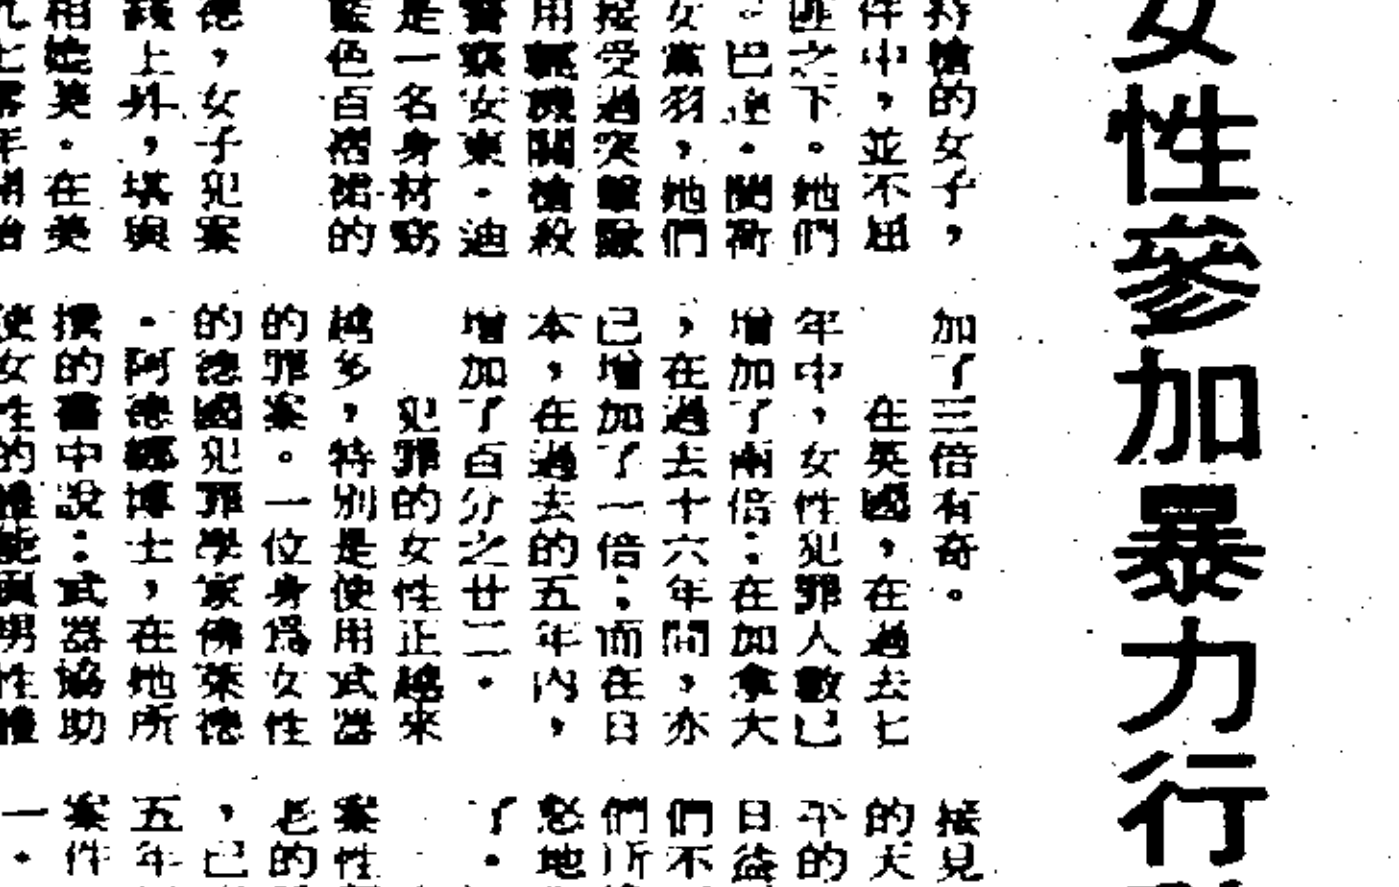 女性參加暴力行
持槍的女子，
件中，並不屈
匪之下。她們
。巴達．
女黨羽，她們
接受過突擊隊
用輕機關槍殺
警察安東．迪
是一名身材窈
藍色百褶裙的
德，女子犯案
上升，堪與
相媲美．在美
九七零年開始
加了三倍有奇。
在英國，在過去七
年中，女性犯罪人數已
增加了兩倍；在加拿大
，在過去十六年間，亦
已增加了一倍；而在日
本，在過去的五年內，
增加了百分之廿二．
犯罪的女性正越來
越多，特別是使用武器
的罪案。一位身爲女性
的德國犯罪學家佛萊德
．阿德娜博士，在她所
撰的書中說：武器協助
使女性的權能與男性權
接見
的天
平的
日益
們不
們所
地
了．
案性
老的
，已
五年
案件
一．